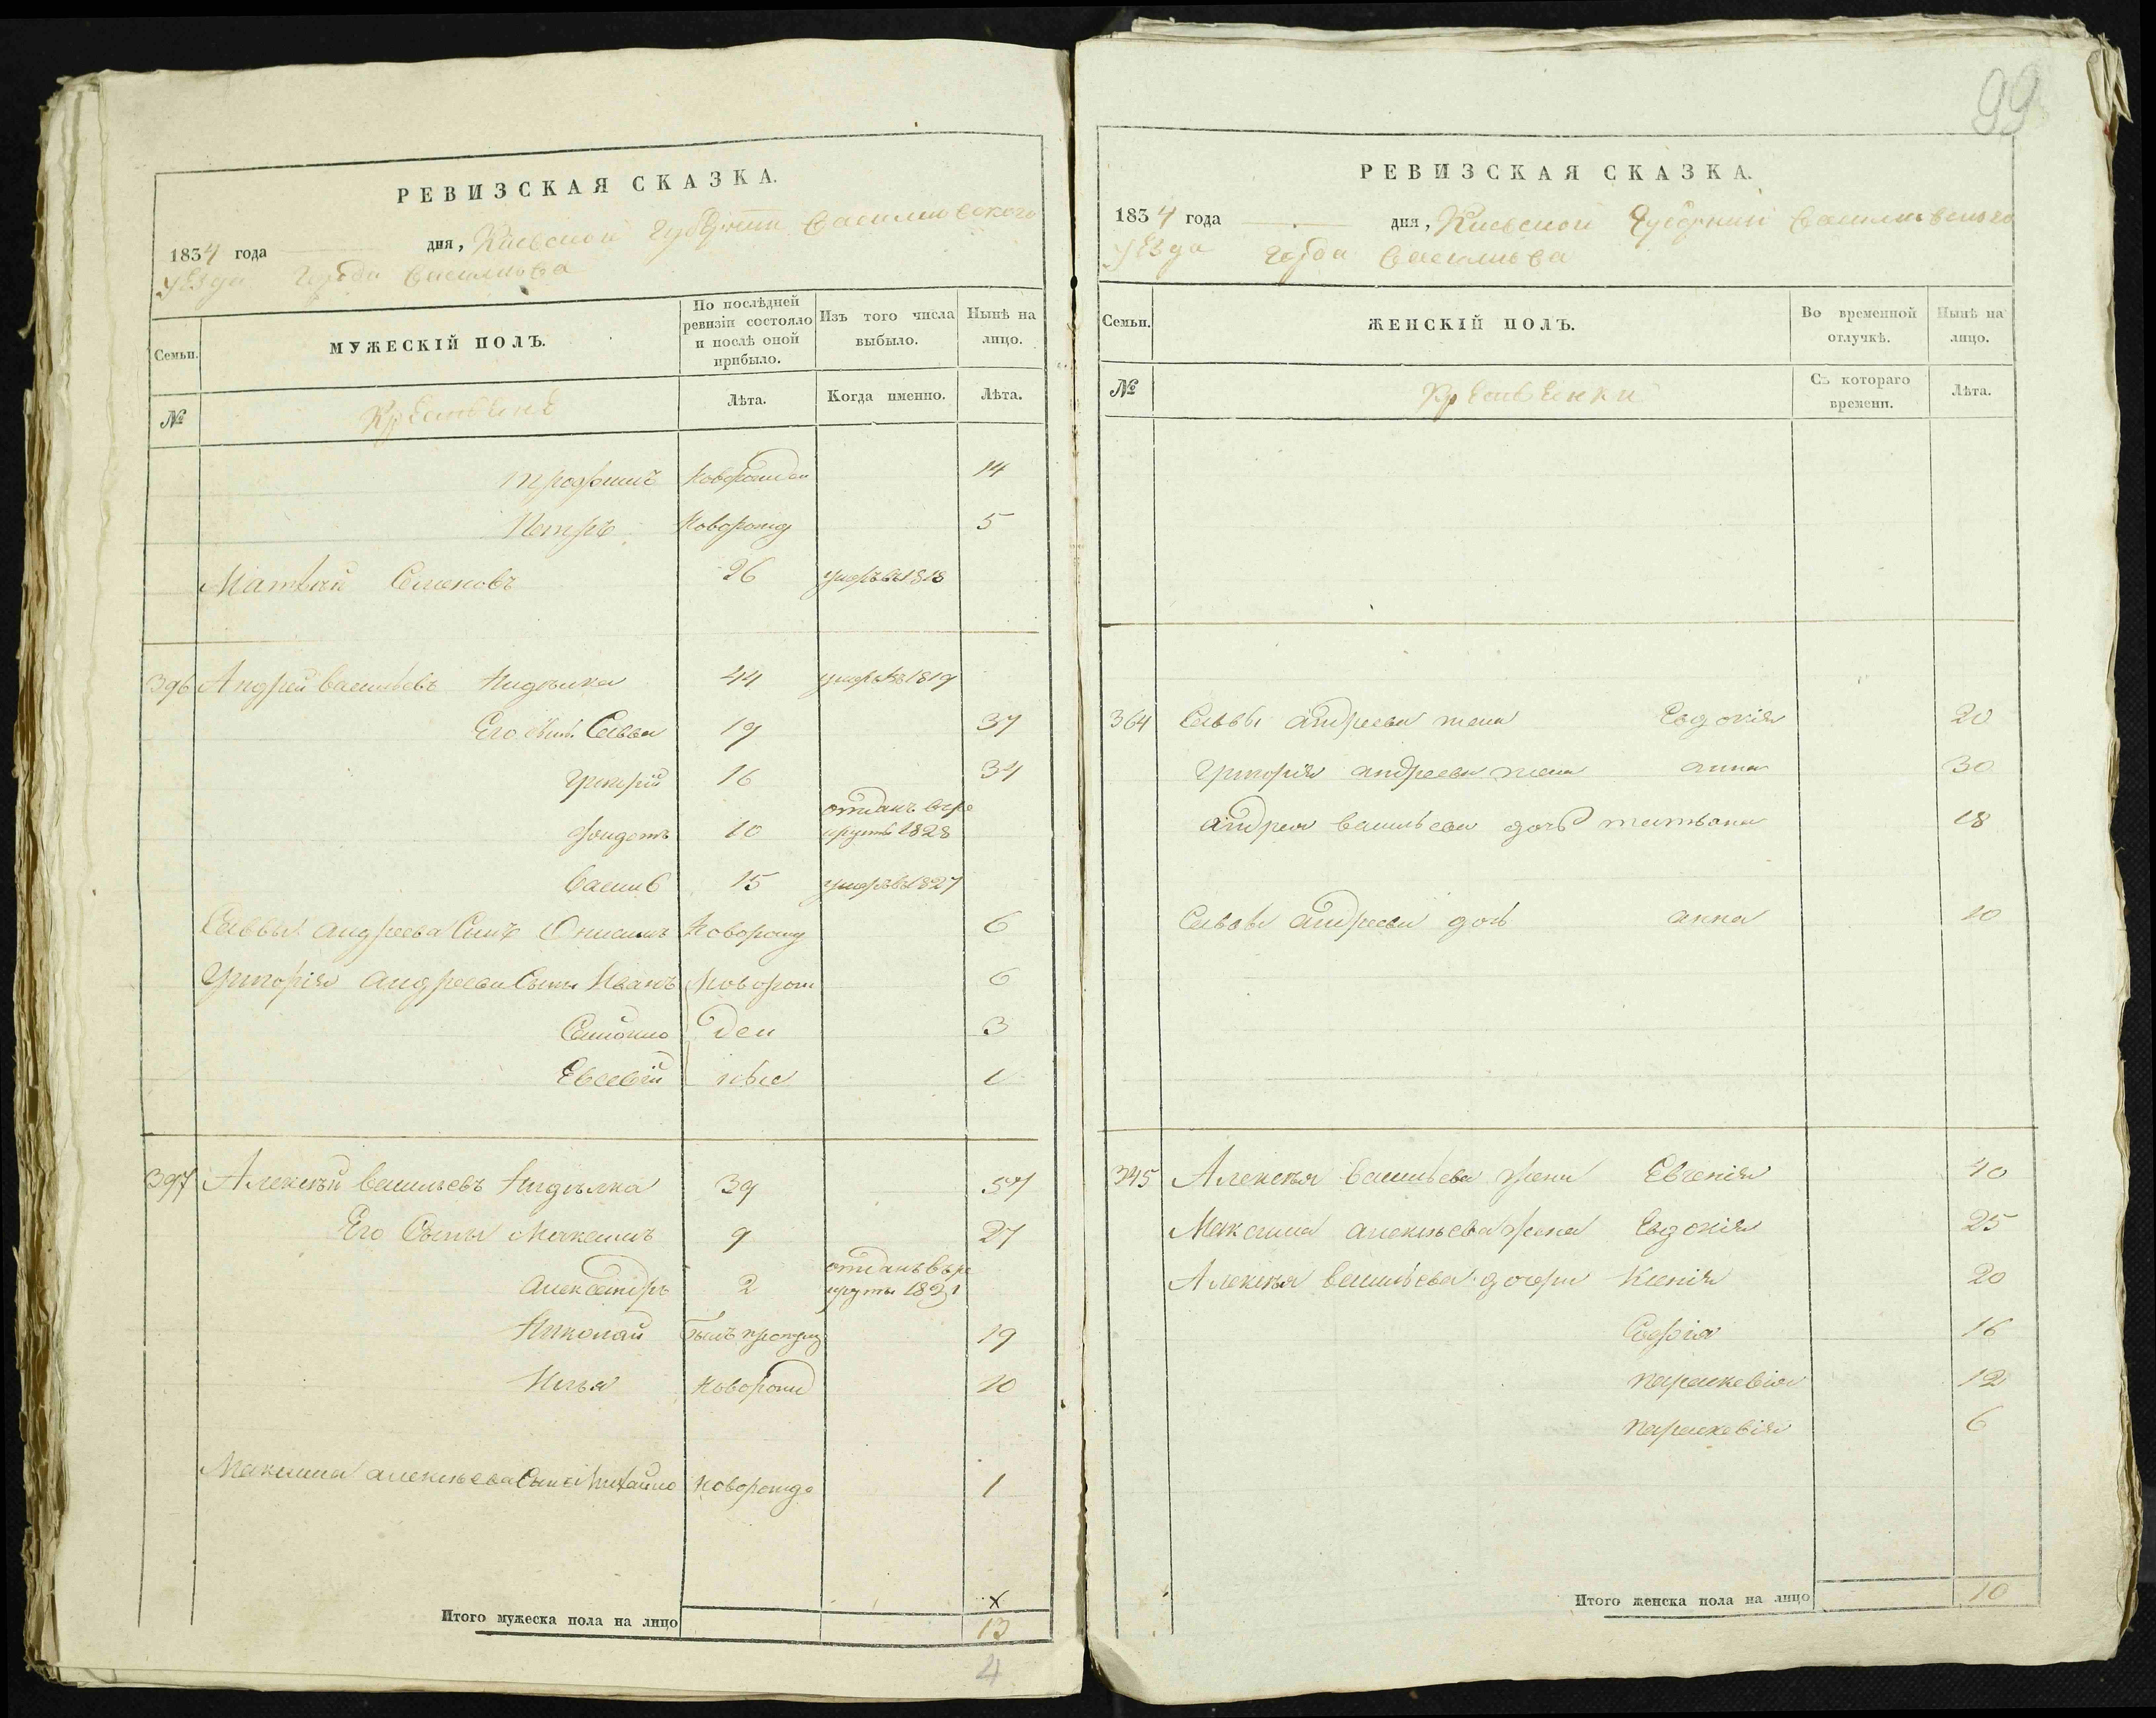 99
РЕВИЗСКАЯ СКАЗКА.
1834 года дня, Киевской Губернии Васильковского
уезда города Василькова
Семьи.
МУЖЕСКІЙ ПОЛЪ.
По послѣдней ревизіи состояло и послѣ оной прибыло.
Изъ того числа выбыло.
Нынѣ на лицо.
№
Лѣта.
Когда именно.
Лѣта.
Трофимъ Новорожден 14
Петръ Новорожд 5
Матвѣй Семеновъ 26 умеръ въ 1818
396 Андрей Васильевъ 44 умеръ въ 1819
Его Сынъ Савва 19 37
Григорій 16 34
отданъ вре
10 круты 1828
Васил 15 умеръ в 1827
Саввы Андреева Синъ Онисимъ Новорожд 6
Григорія Андреева Сыны ИванъНоворож 6
ден 3
Евсевій ные 1
397 Алексѣй Васильевъ 39 57
Его Сыны Максимъ 9 27
отданъ въ ре
Александръ 2 круты 1831
Николай былъ пропущ 19
Илья Новорожд 10
Максима Алексѣева Сынъ Михайло Новорожде 1
х
Итого мужеска пола на лицо 13
4
РЕВИЗСКАЯ СКАЗКА.
1834 года дня, Киевской Губернии Васильковского
уезда города Василькова
Семьи.
ЖЕНСКІЙ ПОЛЪ.
Во временной отлучкѣ.
Нынѣ на лицо.
№
Съ котораго времени.
Лѣта.
364 Саввы Андреева жена Евдокія 20
Григорія Андреева жена анна 30
Андрея Васильева дочь татьяна 18
Саввы Андреева дочь анна 10
345 Алексѣя Васильева жена Евгенія 40
Максима Алексѣева жена Евдокія 25
Алексѣя Васильева дочери Ксенія 20
Софія 16
Параскевія 12
Параскевія 6
Итого женска пола на лицо 10